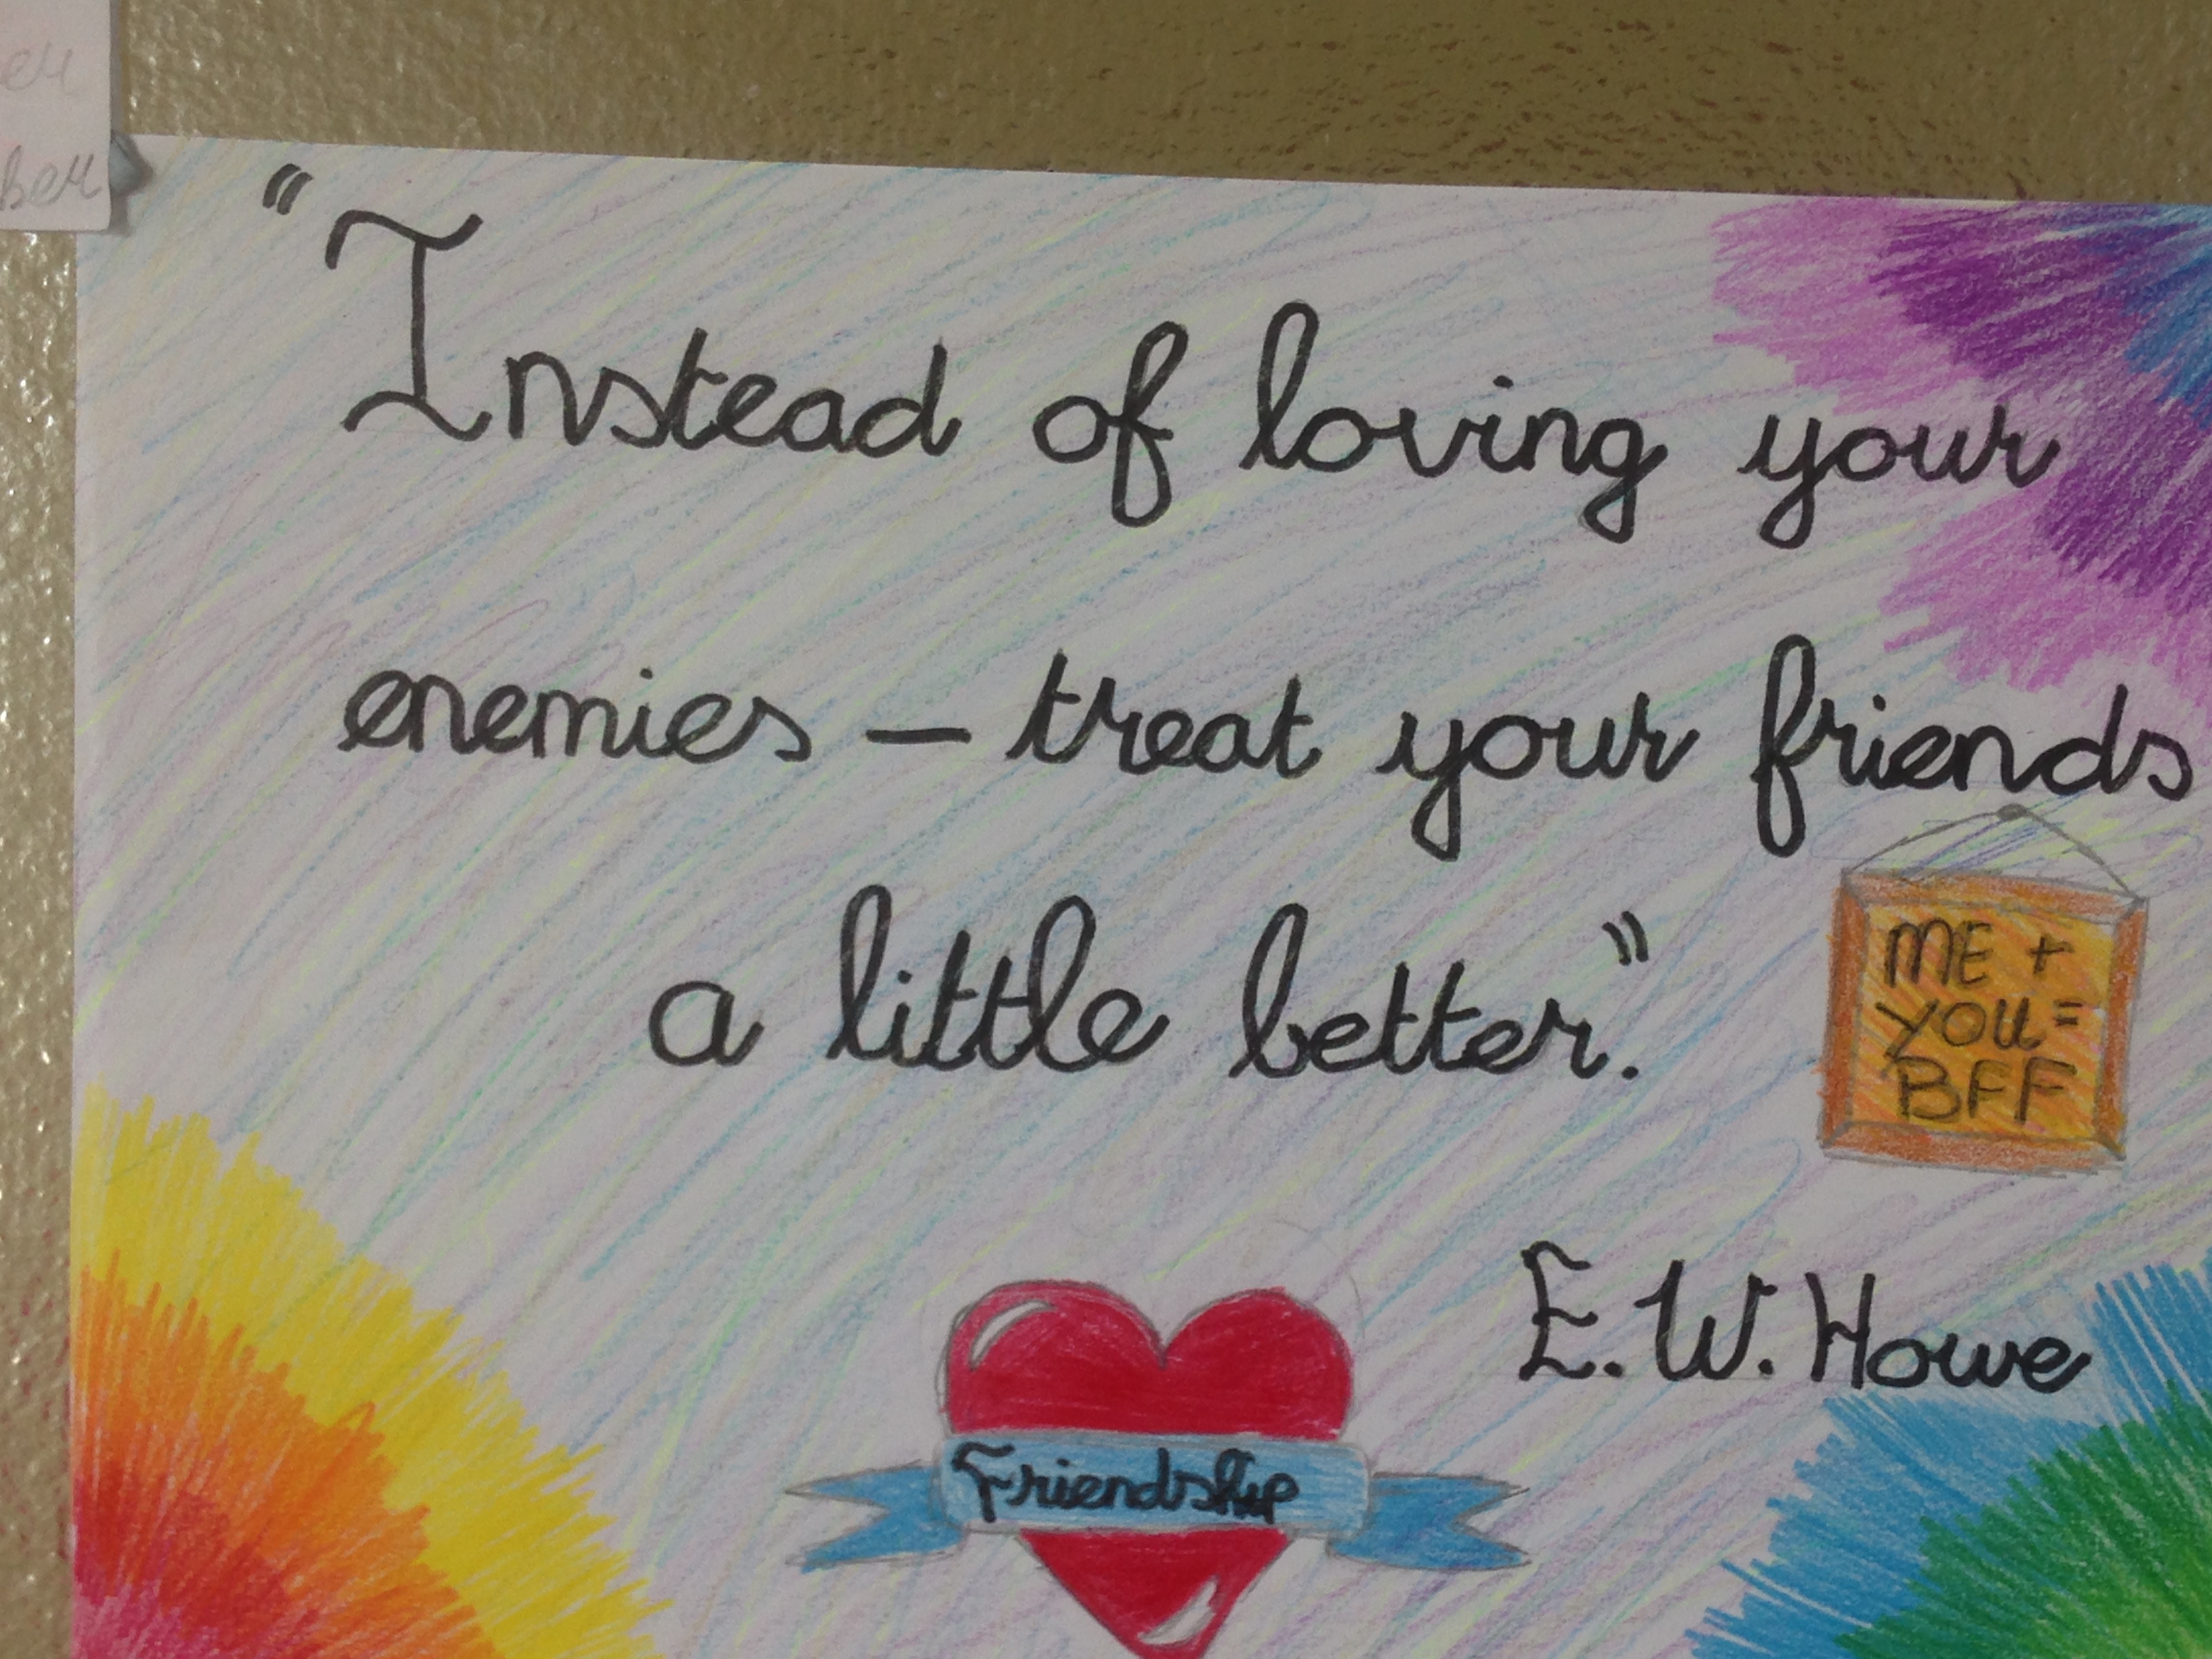 "Instead of loving your
enemies – treat your friends
a little better."
ME +
YOU =
BFF
E. W. Howe
Friendship